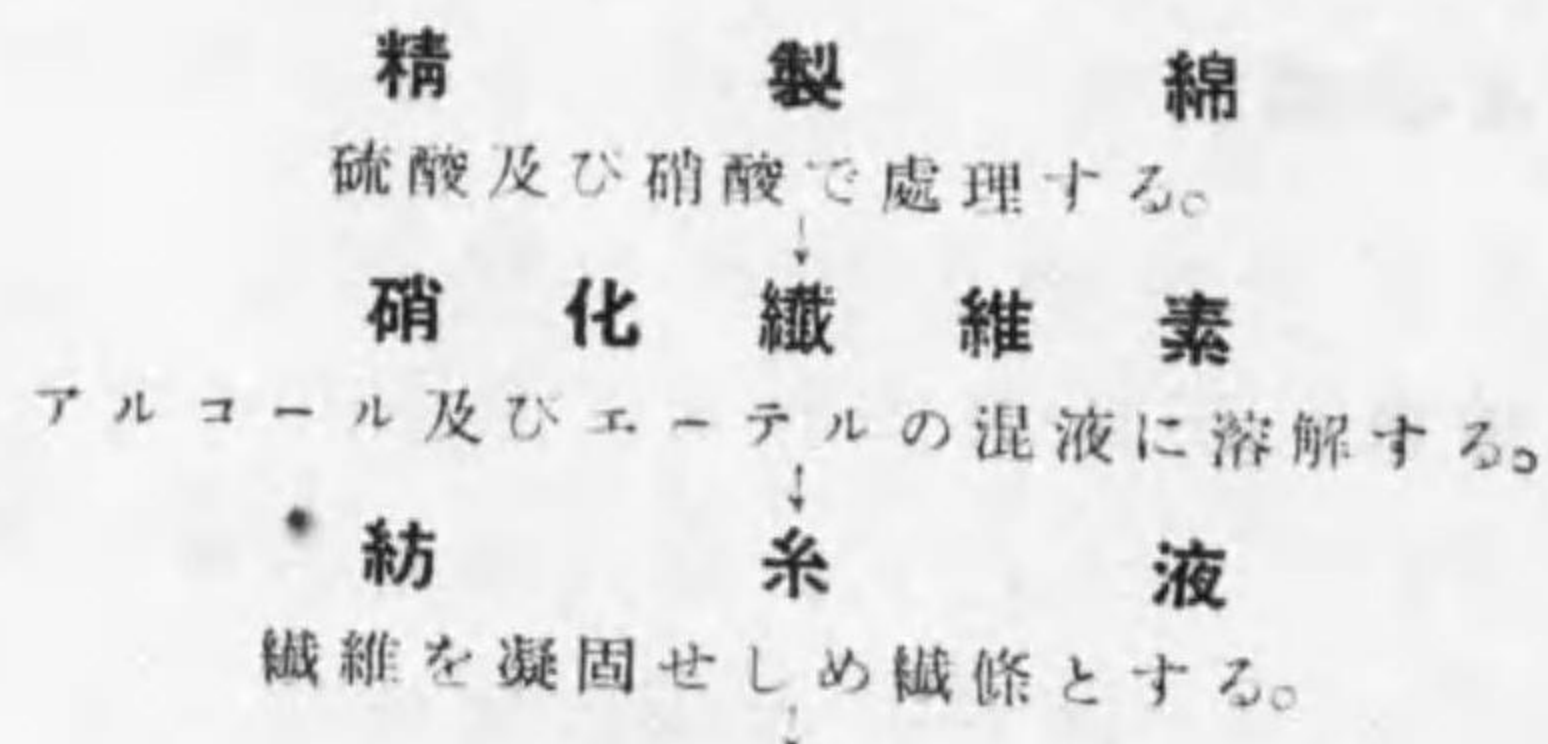 精製綿
硫酸及び硝酸で處理する。
↓
硝化纖維素
アルコール及びエーテルの混液に溶解する。
↓
紡糸液
纎維を凝固せしめ纎條とする。
↓